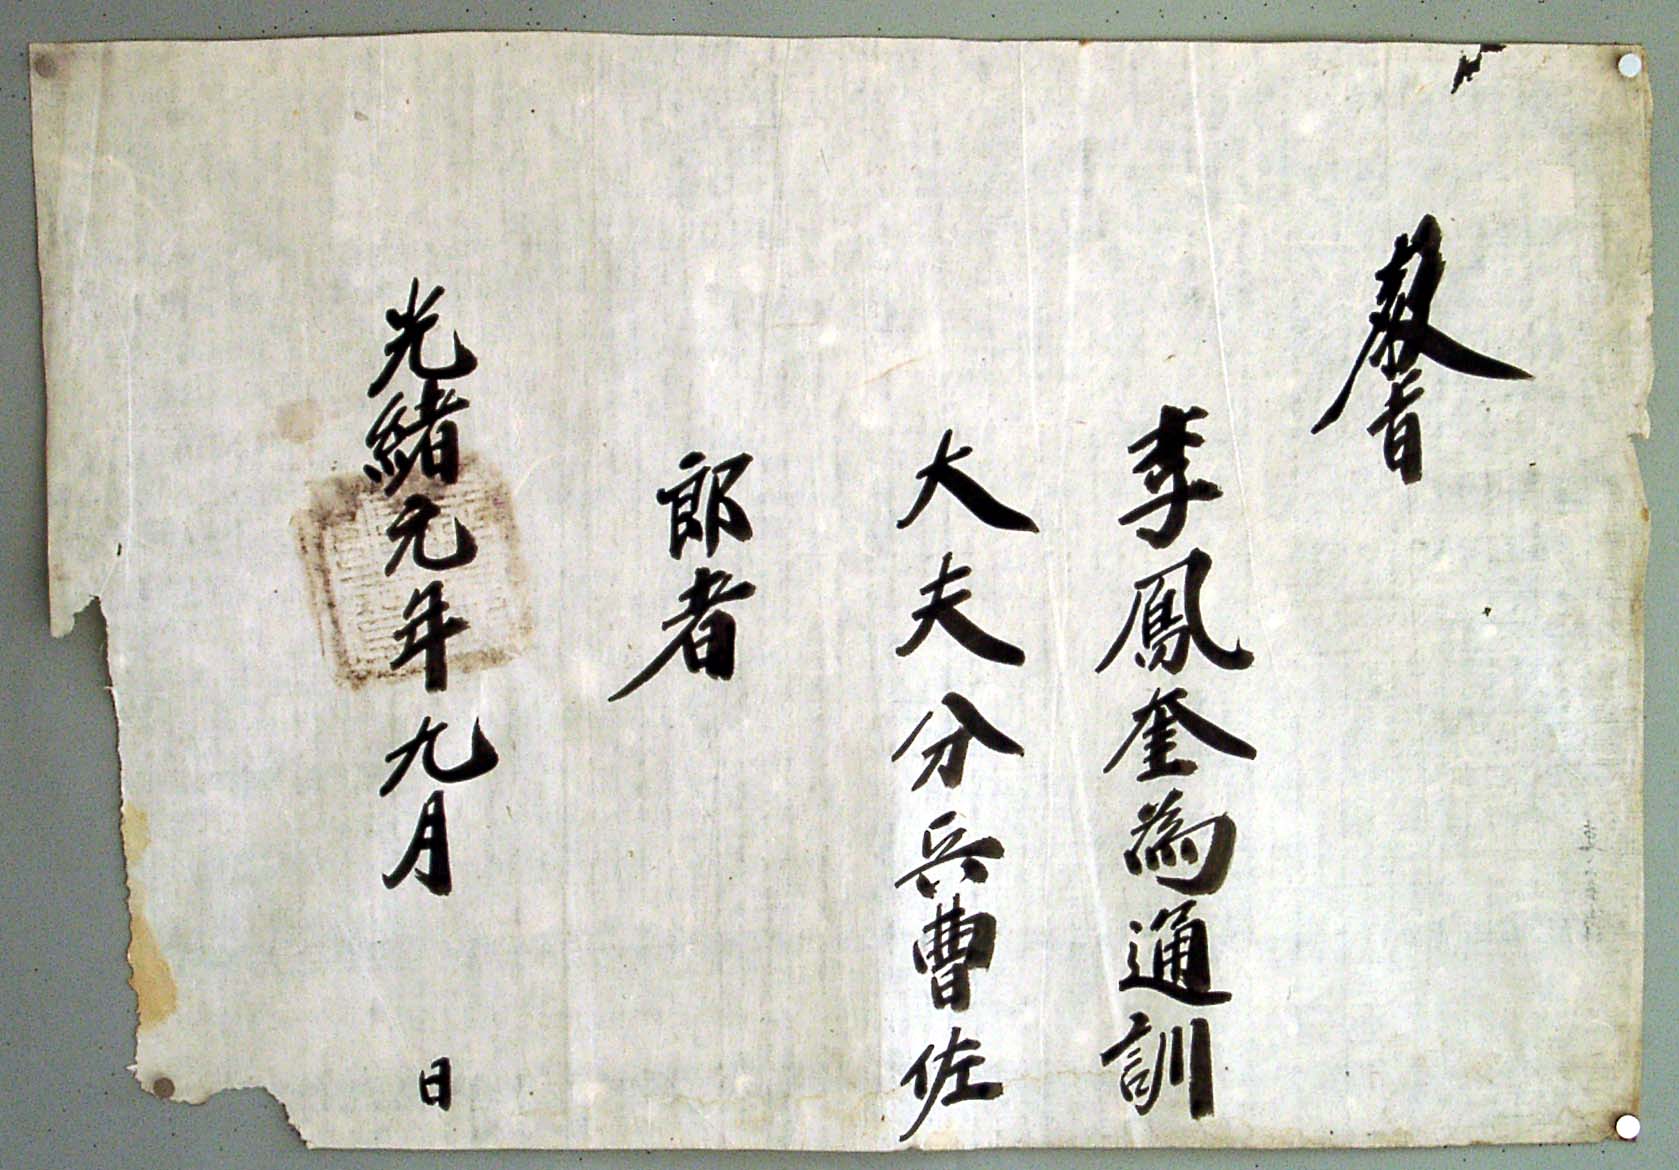 敎旨
李鳳奎爲通訓
大夫分兵曹佐
郎者
光緖元年九月 日